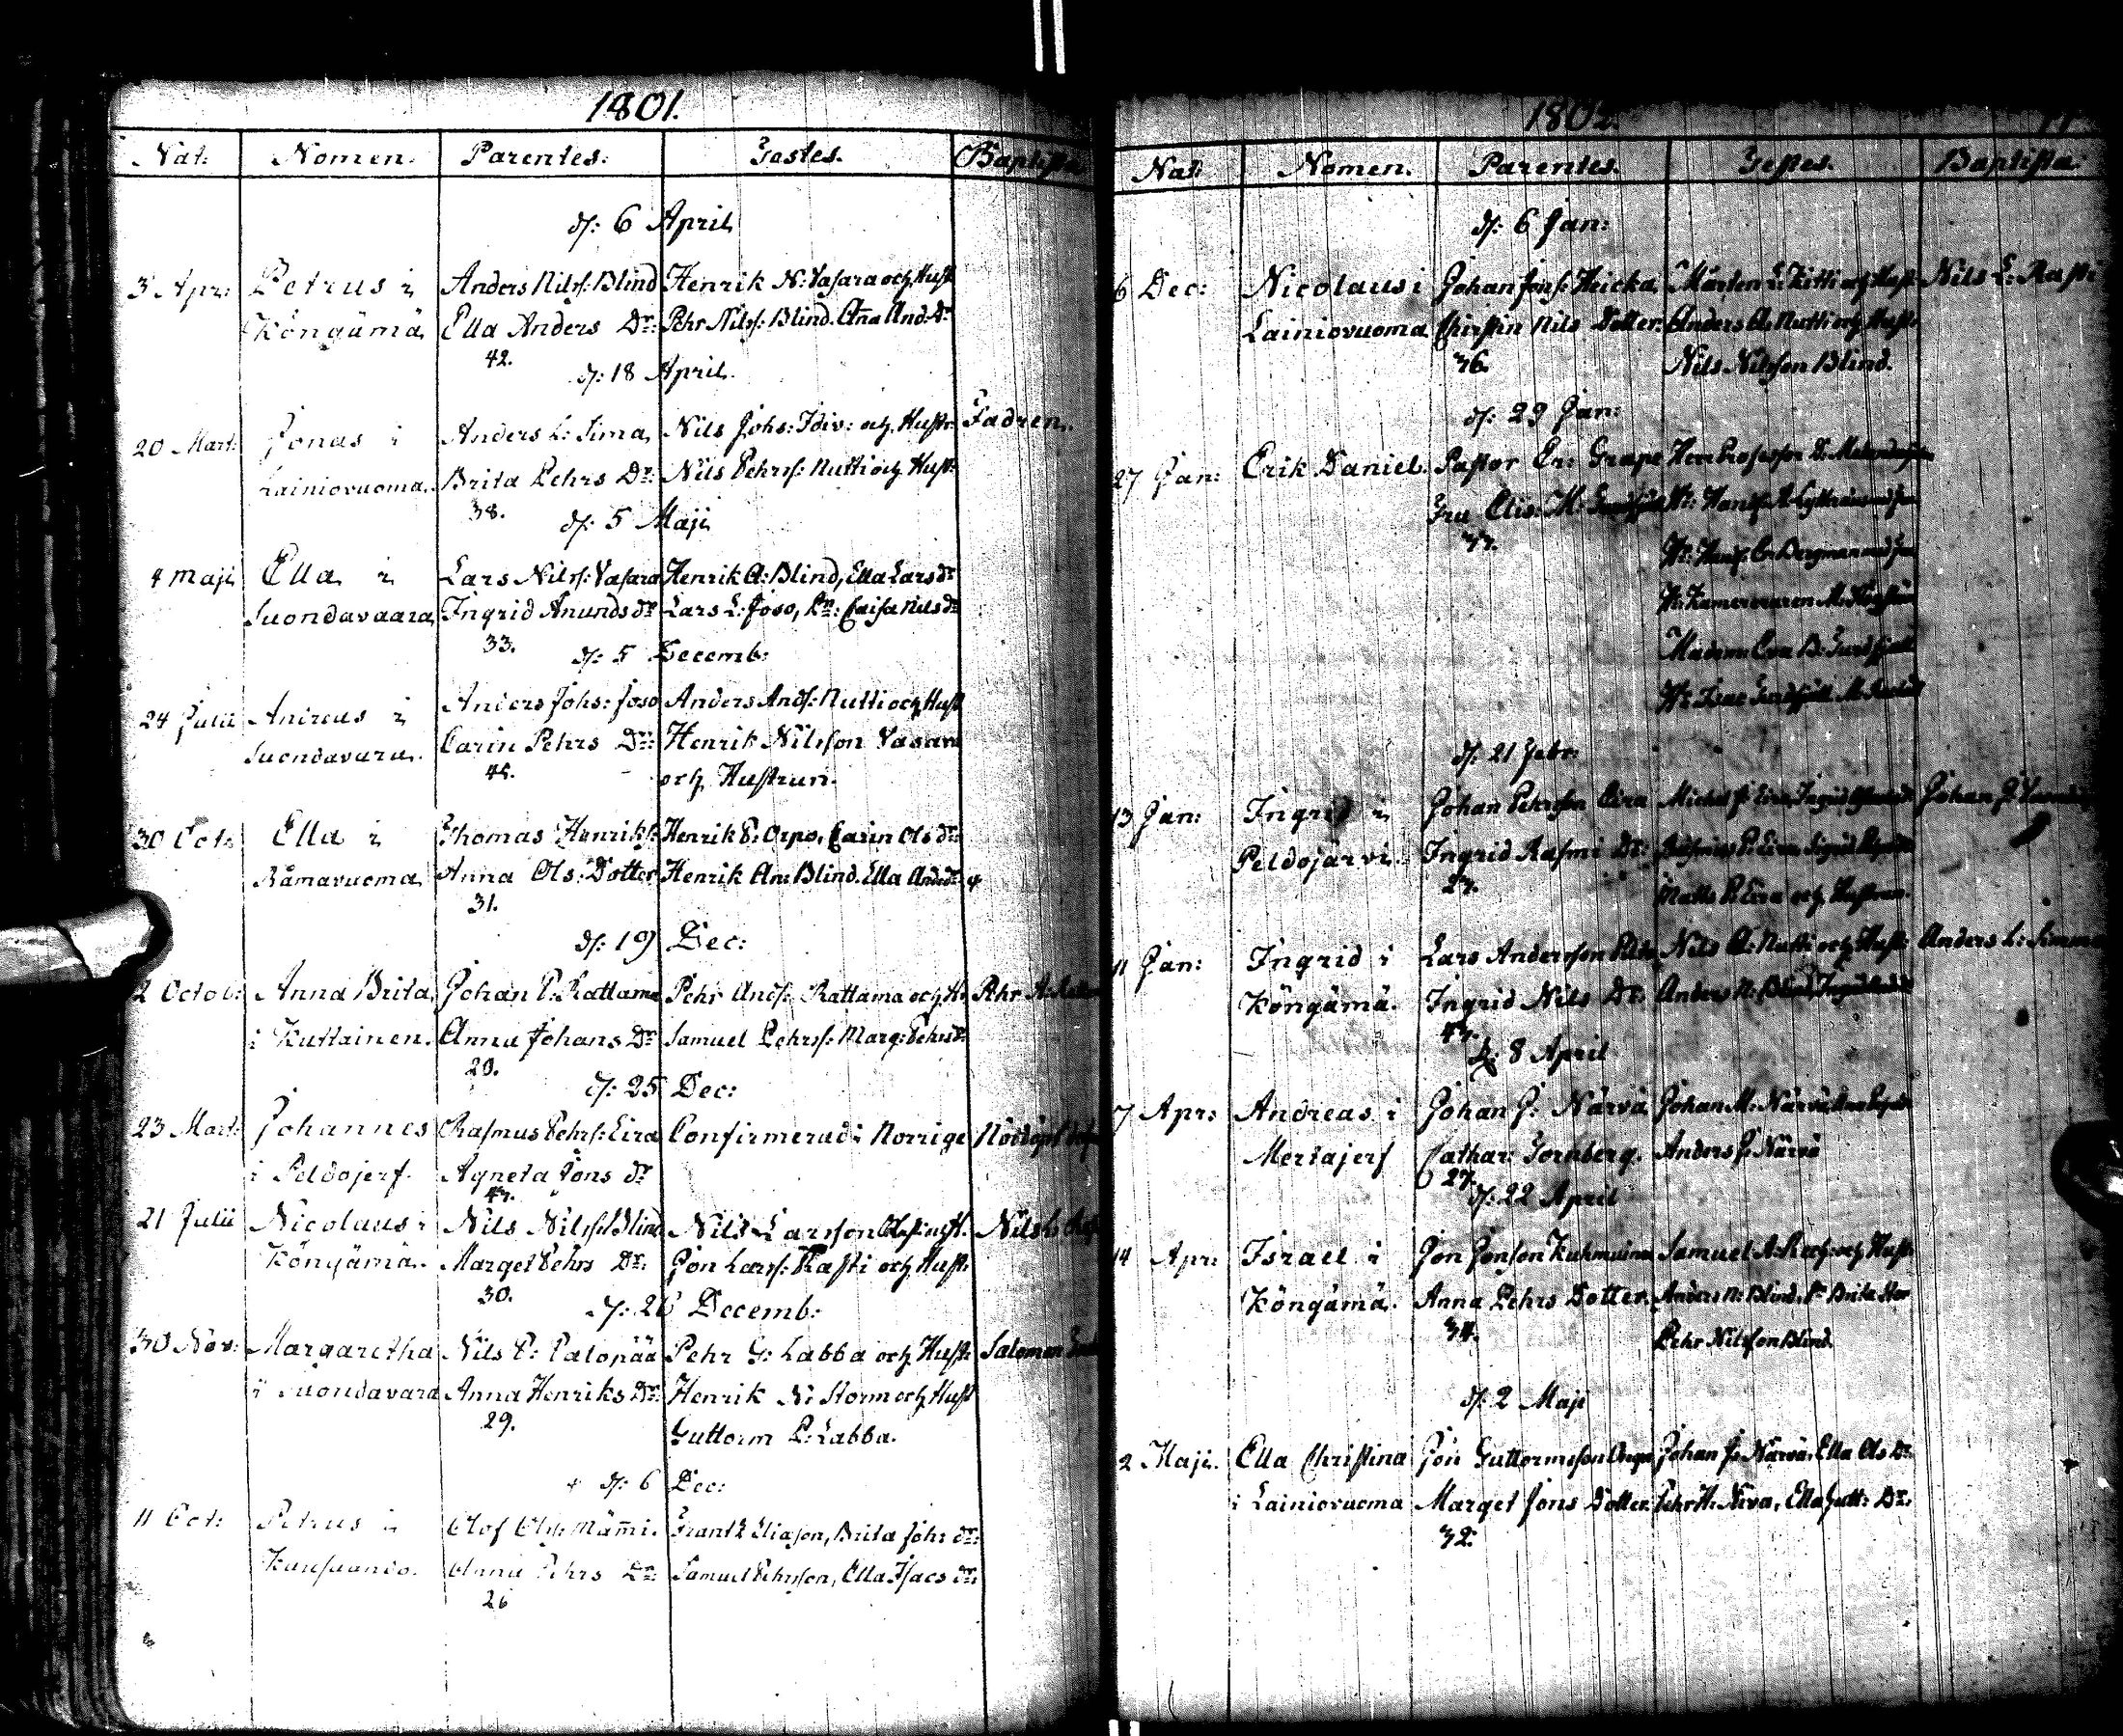 1801.
Nat: Nomen. Parentes: Testes. Baptista
d: 6 April
3 Apr: Petrus i Anders Nilss: Blind Henrik N: Vasara och Hust
Köngämä Ella Anders Dr: Pehr Nilss: Blind. Anna And: Dr
42.
d: 18 April.
20 Mart: Jonas i Anders L: Sima Nils Johs: Idiv: och Hustr Fadren.
Lainiovuoma. Brita Pehrs Dr: Nils Pehrss: Nutti och Hust:
38.
d: 5 Maji
4 Maji Ella i Lars Nilss: Vasara Henrik A: Blind, Ella Lars dr
Suondavaara Ingrid Anunds dr Lars L: Joso, Caisa Nils dr
33.
d: 5 Decemb:
24 Julii Andreas i Anders Johs: Joso Anders Ands: Nutti och Hust
Suondavara. Carin Pehrs Dr: Henrik Nilsson Vasara
45. och Hustrun.
30 Oct: Ella i Thomas Henriks: Henrik P: Orpo, Carin Ols dr:
Råmavuoma Anna Ols: Dotter Henrik An: Blind. Ella And: dr
31.
d: 19 Dec:
2 Octob: Anna Brita Johan P: Rattama Pehr Ands: Rattama och H: Pehr A:
i Kuttainen. Anna Johans Dr Samuel Pehrss: Marg: Pehrs dr
20.
d: 25 Dec:
23 Mart: Johannes Rasmus Pehrs: Eira Confirmerad i Norrige Nöddöpt
i Peldojerf. Agneta Jons dr
43.
21 Julii Nicolaus i Nils Nilss: Blind Nils Larsson och H. Nils L:
Köngämä. Marget Pehrs Dr: Jon Larss: Rasti och Hust:
30.
d: 26 Decemb:
30 Nov: Margaretha Nils P: Palopää Pehr G: Labba och Hust: Salomon
i Suondavara Anna Henriks Dr: Henrik N: Storm och Hust
29. Guttorm P: Labba.
d: 6 Dec:
11 Oct: Petrus i Olof Ols: Mämmi. Frantz Eliason, Brita Johs dr:
Anna Pehrs Dr: Samuel Pehrsson, Ella Isacs dr:
26
1802.
Nat: Nomen. Parentes. Testes. Baptista.
d: 6 Jan:
6 Dec: Nicolaus i Johan Jons: Heicka Mårten L: Kitti och Hust: Nils L: Rasti
Lainiovuoma Christin Nils Dotter. Anders A: Nutti och Hust:
36. Nils Nilsson Blind.
d: 29 Jan:
27 Jan: Erik Daniel. Pastor Er: Grape Herr Professor D:
Fru Elis: M:
33. Bergman
Kamereraren
Madame Eva B:
Isac
d: 21 Febr:
13 Jan: Ingrid i Johan Pehrsson Eira Michel Ingrid Johan J:
Peldojärvi. Ingrid Rasmi Dr: P: Eira
23. Matts P: Eira och Hustrun.
11 Jan: Ingrid i Lars Andersson Nils A: Nutti och Hust: Anders L: Simma
Köngämä. Ingrid Nils Dr: Anders N: Blind
43.
d: 8 April
7 Apr: Andreas i Johan J: Närvä Johan M: Närvä
Mertajerf Cathar: Fornberg. Anders J: Närvä
27.
d: 22 April
14 Apr: Israel i Jon Jonson Kuhmuinen Samuel A: och Hust:
Köngämä. Anna Pehrs Dotter. Anders N: Blind, Brita
34. Pehr Nilsson Blind.
d: 2 Maji
2 Maji. Ella Christina Jon Guttormsson Johan J: Närvä, Ella Ols Dr:
i Lainiovuoma Marget Jons Dotter. Pehr H: Niva, Ella Gutt: Dr:
32.